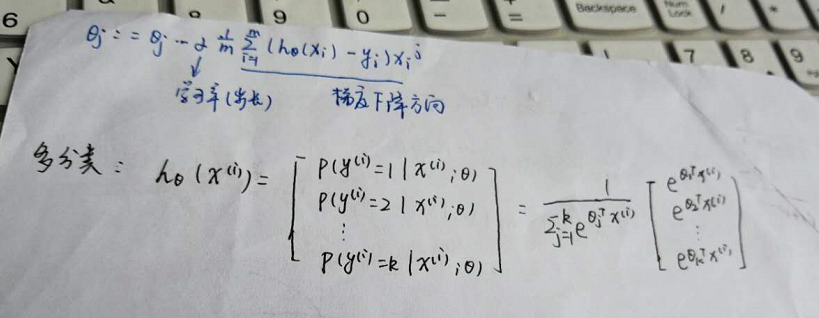 6 9 0 - = Backspace Num Lock / *
θj := θj - α 1/m Σ_{i=1}^{m} (hθ(xi) - yi) xi^j
7 8 9
学习率(步长) 梯度下降方向
多分类: hθ(x^(i)) = [ P(y^(i)=1 | x^(i);θ) P(y^(i)=2 | x^(i);θ) ⋮ P(y^(i)=k | x^(i);θ) ] = 1 / Σ_{j=1}^{k} e^{θj^T x^(i)} [ e^{θ1^T x^(i)} e^{θ2^T x^(i)} ⋮ e^{θk^T x^(i)} ]